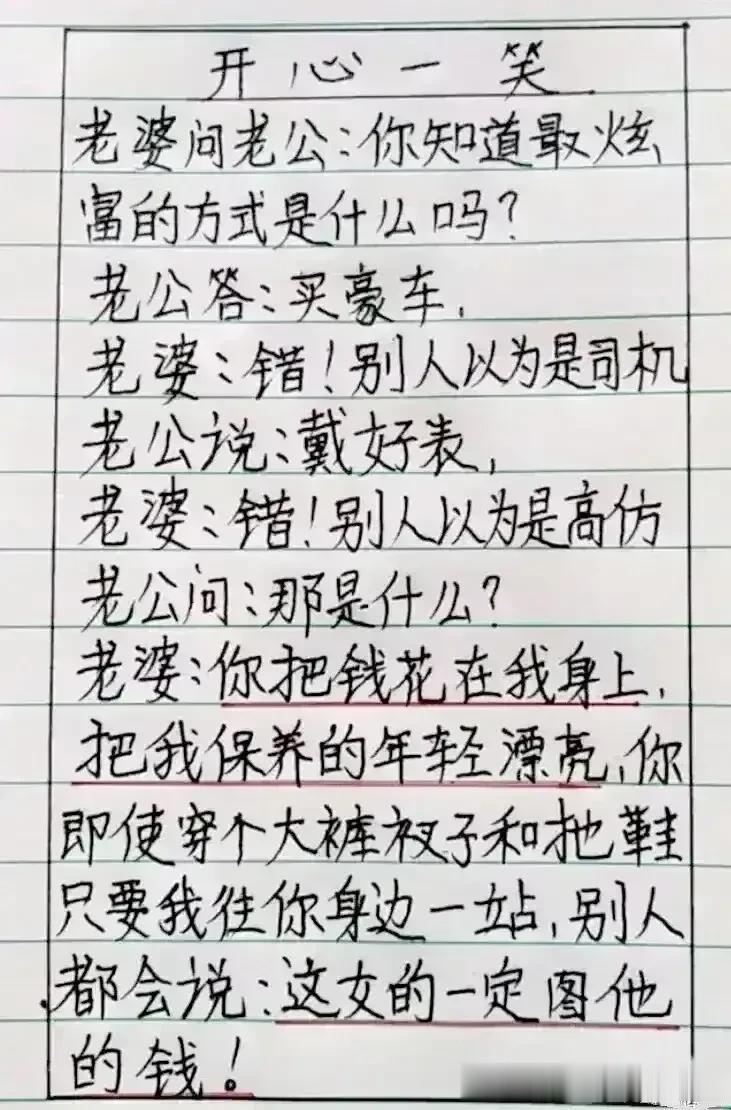 开心一笑
老婆问老公：你知道最炫
富的方式是什么吗？
老公答：买豪车，
老婆：错！别人以为是司机
老公说：戴好表，
老婆：错！别人以为是高仿
老公问：那是什么？
老婆：你把钱花在我身上，
把我保养的年轻漂亮，你
即使穿个大裤衩子和拖鞋
只要我往你身边一站，别人
都会说：这女的一定图他
的钱！